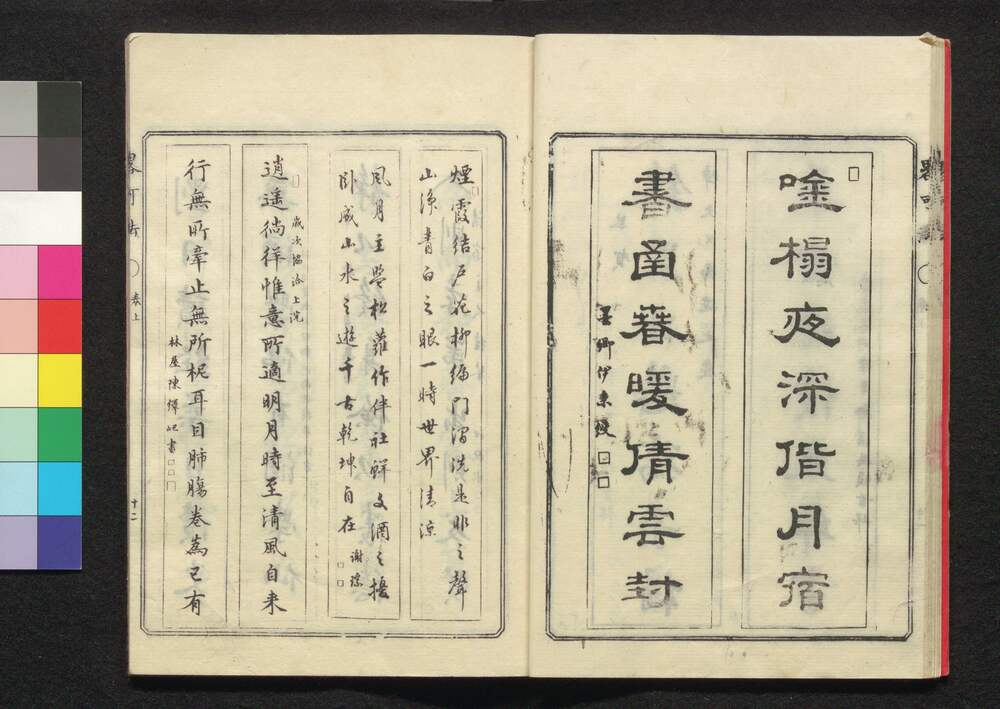 唫榻夜深偕月宿
書函春暖倩雲封
墨卿伊秉綬
煙霞結戶花柳編門渭洗是非之聲
山淨青白之眼一時世界清涼
風月主盟松蘿作伴社鮮文酒之擾
臥成山水之遊千古乾坤自在 謝琮
逍遙徜徉惟意所適明月時至清風自来
歲次協洽上浣
行無所牽止無所柅耳目肺腸卷為己有
林屋陳
書
卷上
十二